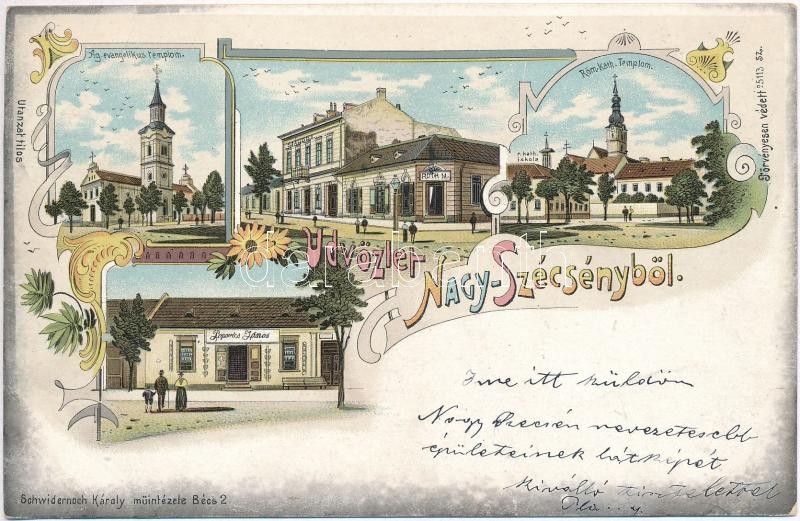 Ág. evangelikus templom.
Róm. Kath. Templom.
r. kath.
iskola
RÓTH M.
Utánzat tilos
Törvényesen védett 25113 sz.
Üdvözlet
Nagy-Szécsényböl.
Popovics János
Ime itt küldöm
Nagy Szécsén nevezetesebb
épületeinek látképét
kiválló tisztelettel
Schwidernoch Károly müintézete Bécs 2